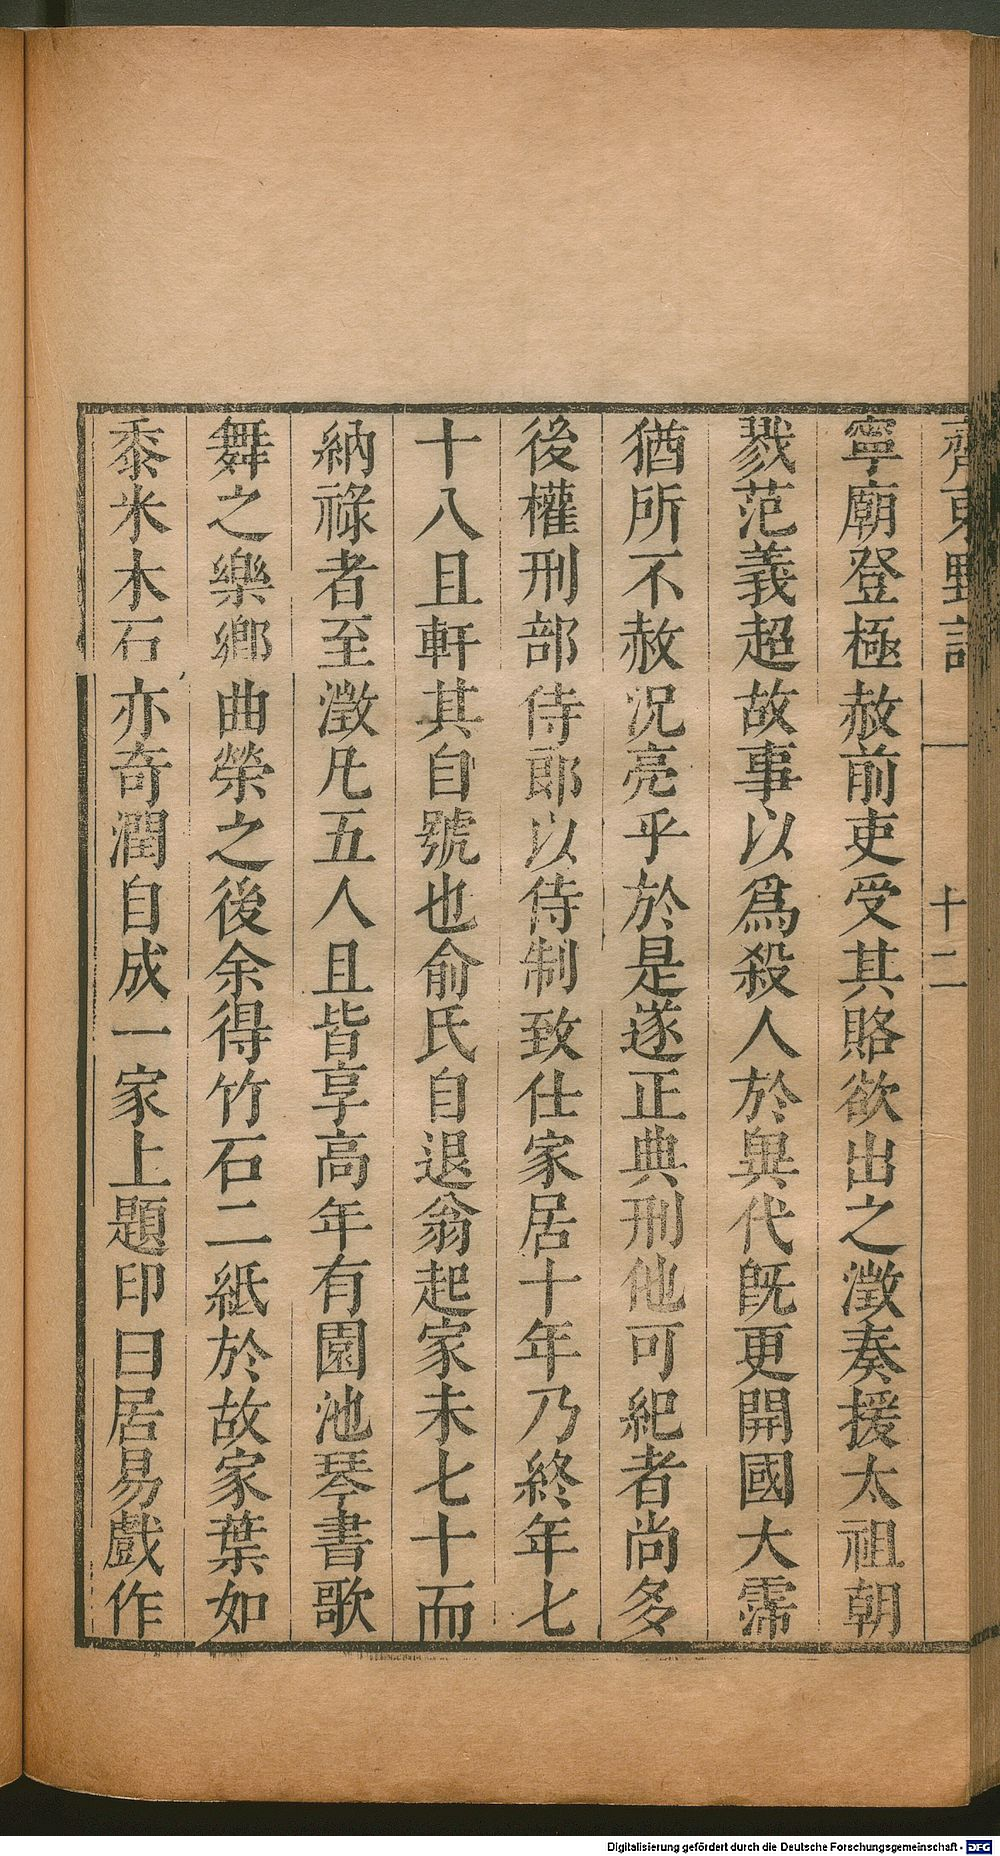 齊東野語
十二
寧廟登極赦前吏受其賂欲出之澂奏援太祖朝
戮范義超故事以爲殺人於異代旣更開國大霈
猶所不赦况亮乎於是遂正典刑他可紀者尚多
後權刑部侍郎以侍制致仕家居十年乃終年七
十八且軒其自號也俞氏自退翁起家未七十而
納祿者至澂凡五人且皆享高年有園池琴書歌
舞之樂鄉曲榮之後余得竹石二紙於故家葉如
黍米木石亦奇潤自成一家上題印曰居易戲作
Digitalisierung gefördert durch die Deutsche Forschungsgemeinschaft - DFG